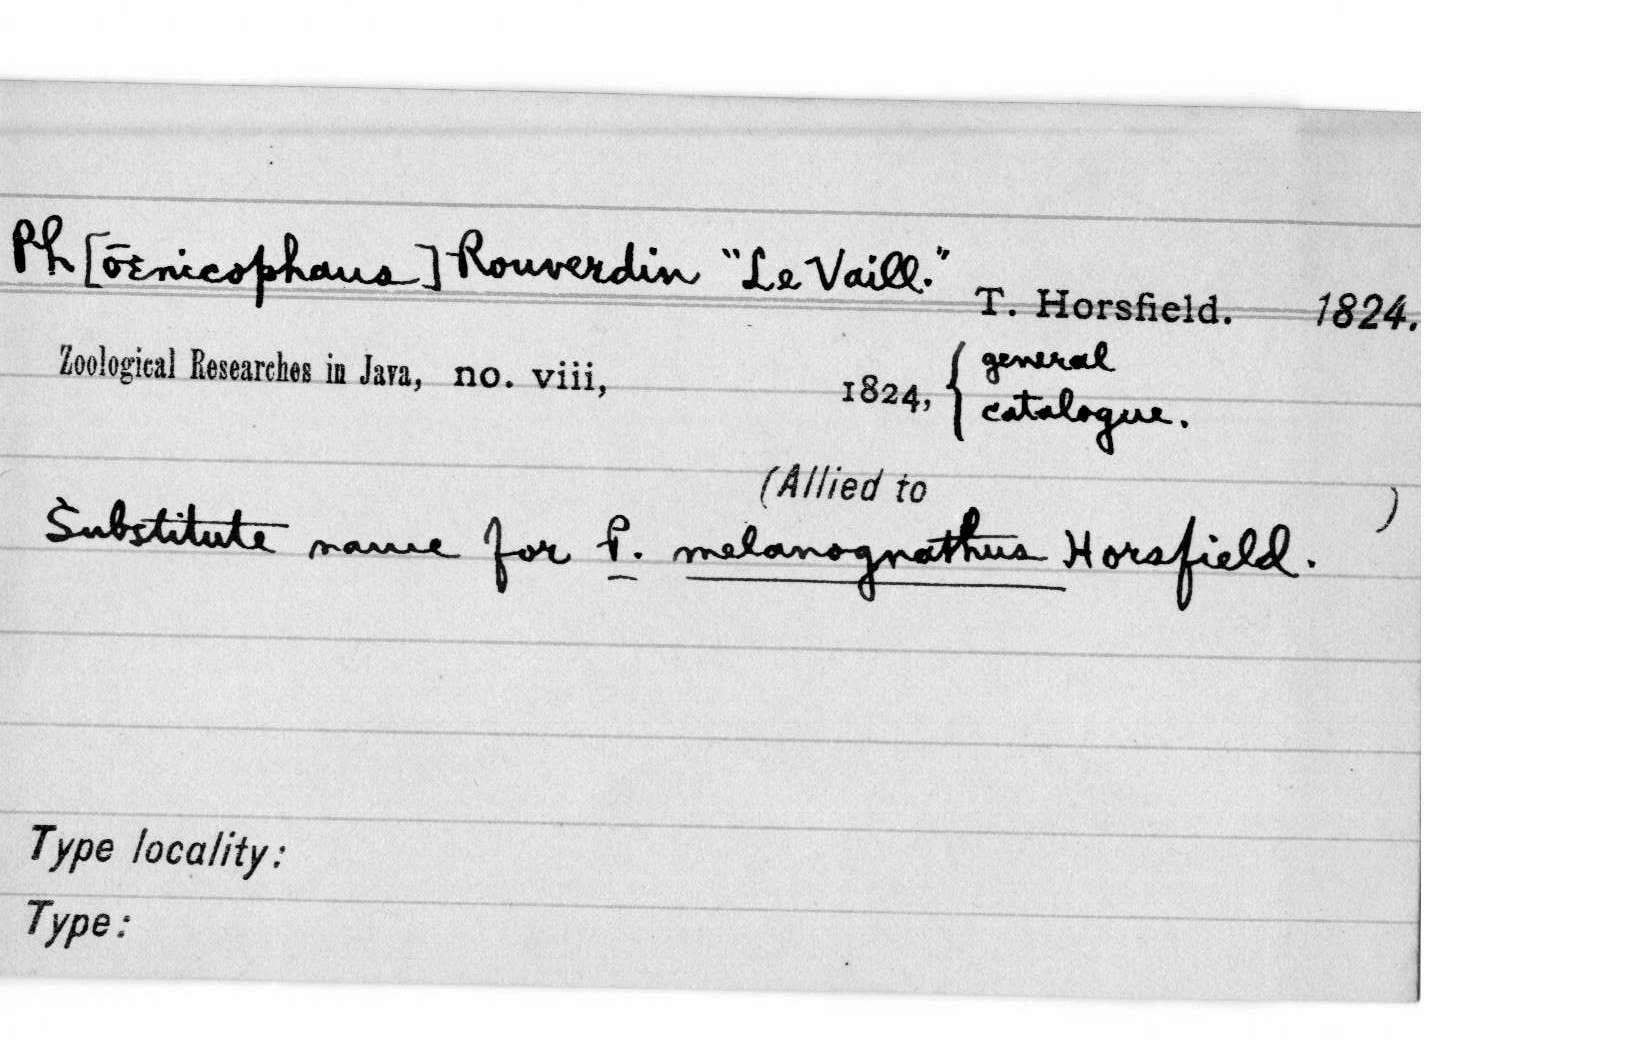 Ph[œnicophaus] Rouverdin "Le Vaill."
T. Horsfield. 1824.
Zoological Researches in Java, no. viii, 1824, { general
catalogue.
(Allied to )
Substitute name for P. melanognathus Horsfield.
Type locality:
Type: